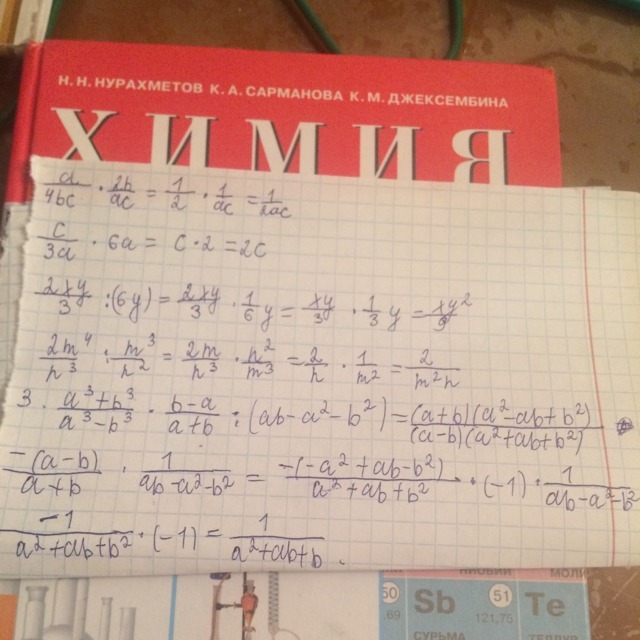 Н. Н. НУРАХМЕТОВ К. А. САРМАНОВА К. М. ДЖЕКСЕМБИНА
ХИМИЯ
a/4bc · 2b/ac = 1/2 · 1/ac = 1/2ac
c/3a · 6a = c · 2 = 2c
2xy/3 : (6y) = 2xy/3 · 1/6 y = xy/3 · 1/3 y = xy²/9
2m⁴/n³ : m³/n² = 2m/n³ · n²/m³ = 2/n · 1/m² = 2/m²n
3. a³+b³/a³-b³ · b-a/a+b : (ab-a²-b²) = (a+b)(a²-ab+b²)/(a-b)(a²+ab+b²) ·
-(a-b)/a+b · 1/ab-a²-b² = -(-a²+ab-b²)/a²+ab+b² · (-1) · 1/ab-a²-b²
-1/a²+ab+b² · (-1) = 1/a²+ab+b.
50 Sb 51 Te
69 121,75
СУРЬМА ТЕЛЛУР